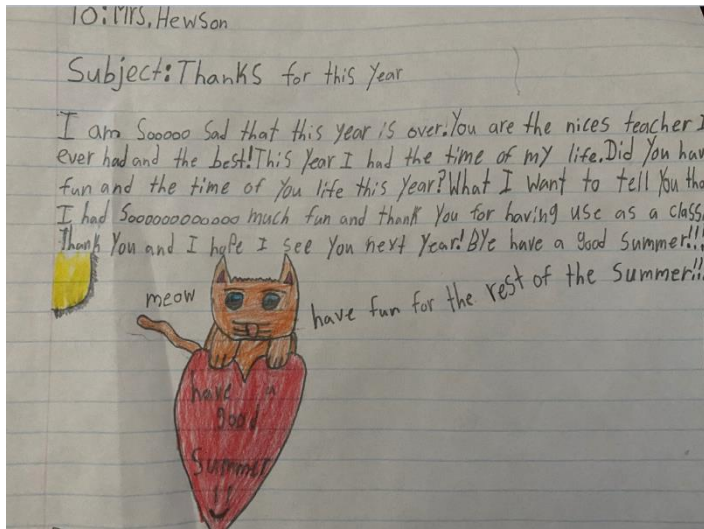 To: Mrs. Hewson
Subject: Thanks for this year
I am Sooooo Sad that this year is over. You are the nices teacher I
ever had and the best! This year I had the time of my life. Did you have
fun and the time of you life this year? What I want to tell you tha
I had Soooooooooooo much fun and thank you for having use as a class.
Thank you and I hope I see you next year! Bye have a good summer!!!
meow
have fun for the rest of the summer!!
have a
good
summer
!!